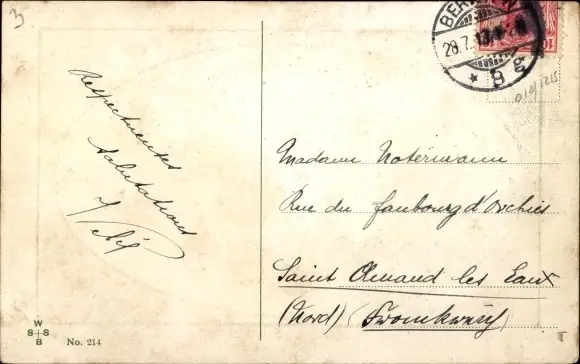 3
BERLIN
28.7.13
8
010/1215
Respectueuses
salutations
Madame Notermann
Rue du faubourg d'Orchies
Saint Amand les Eaux
(Nord) (Frankreich)
W
S S
B
No. 214